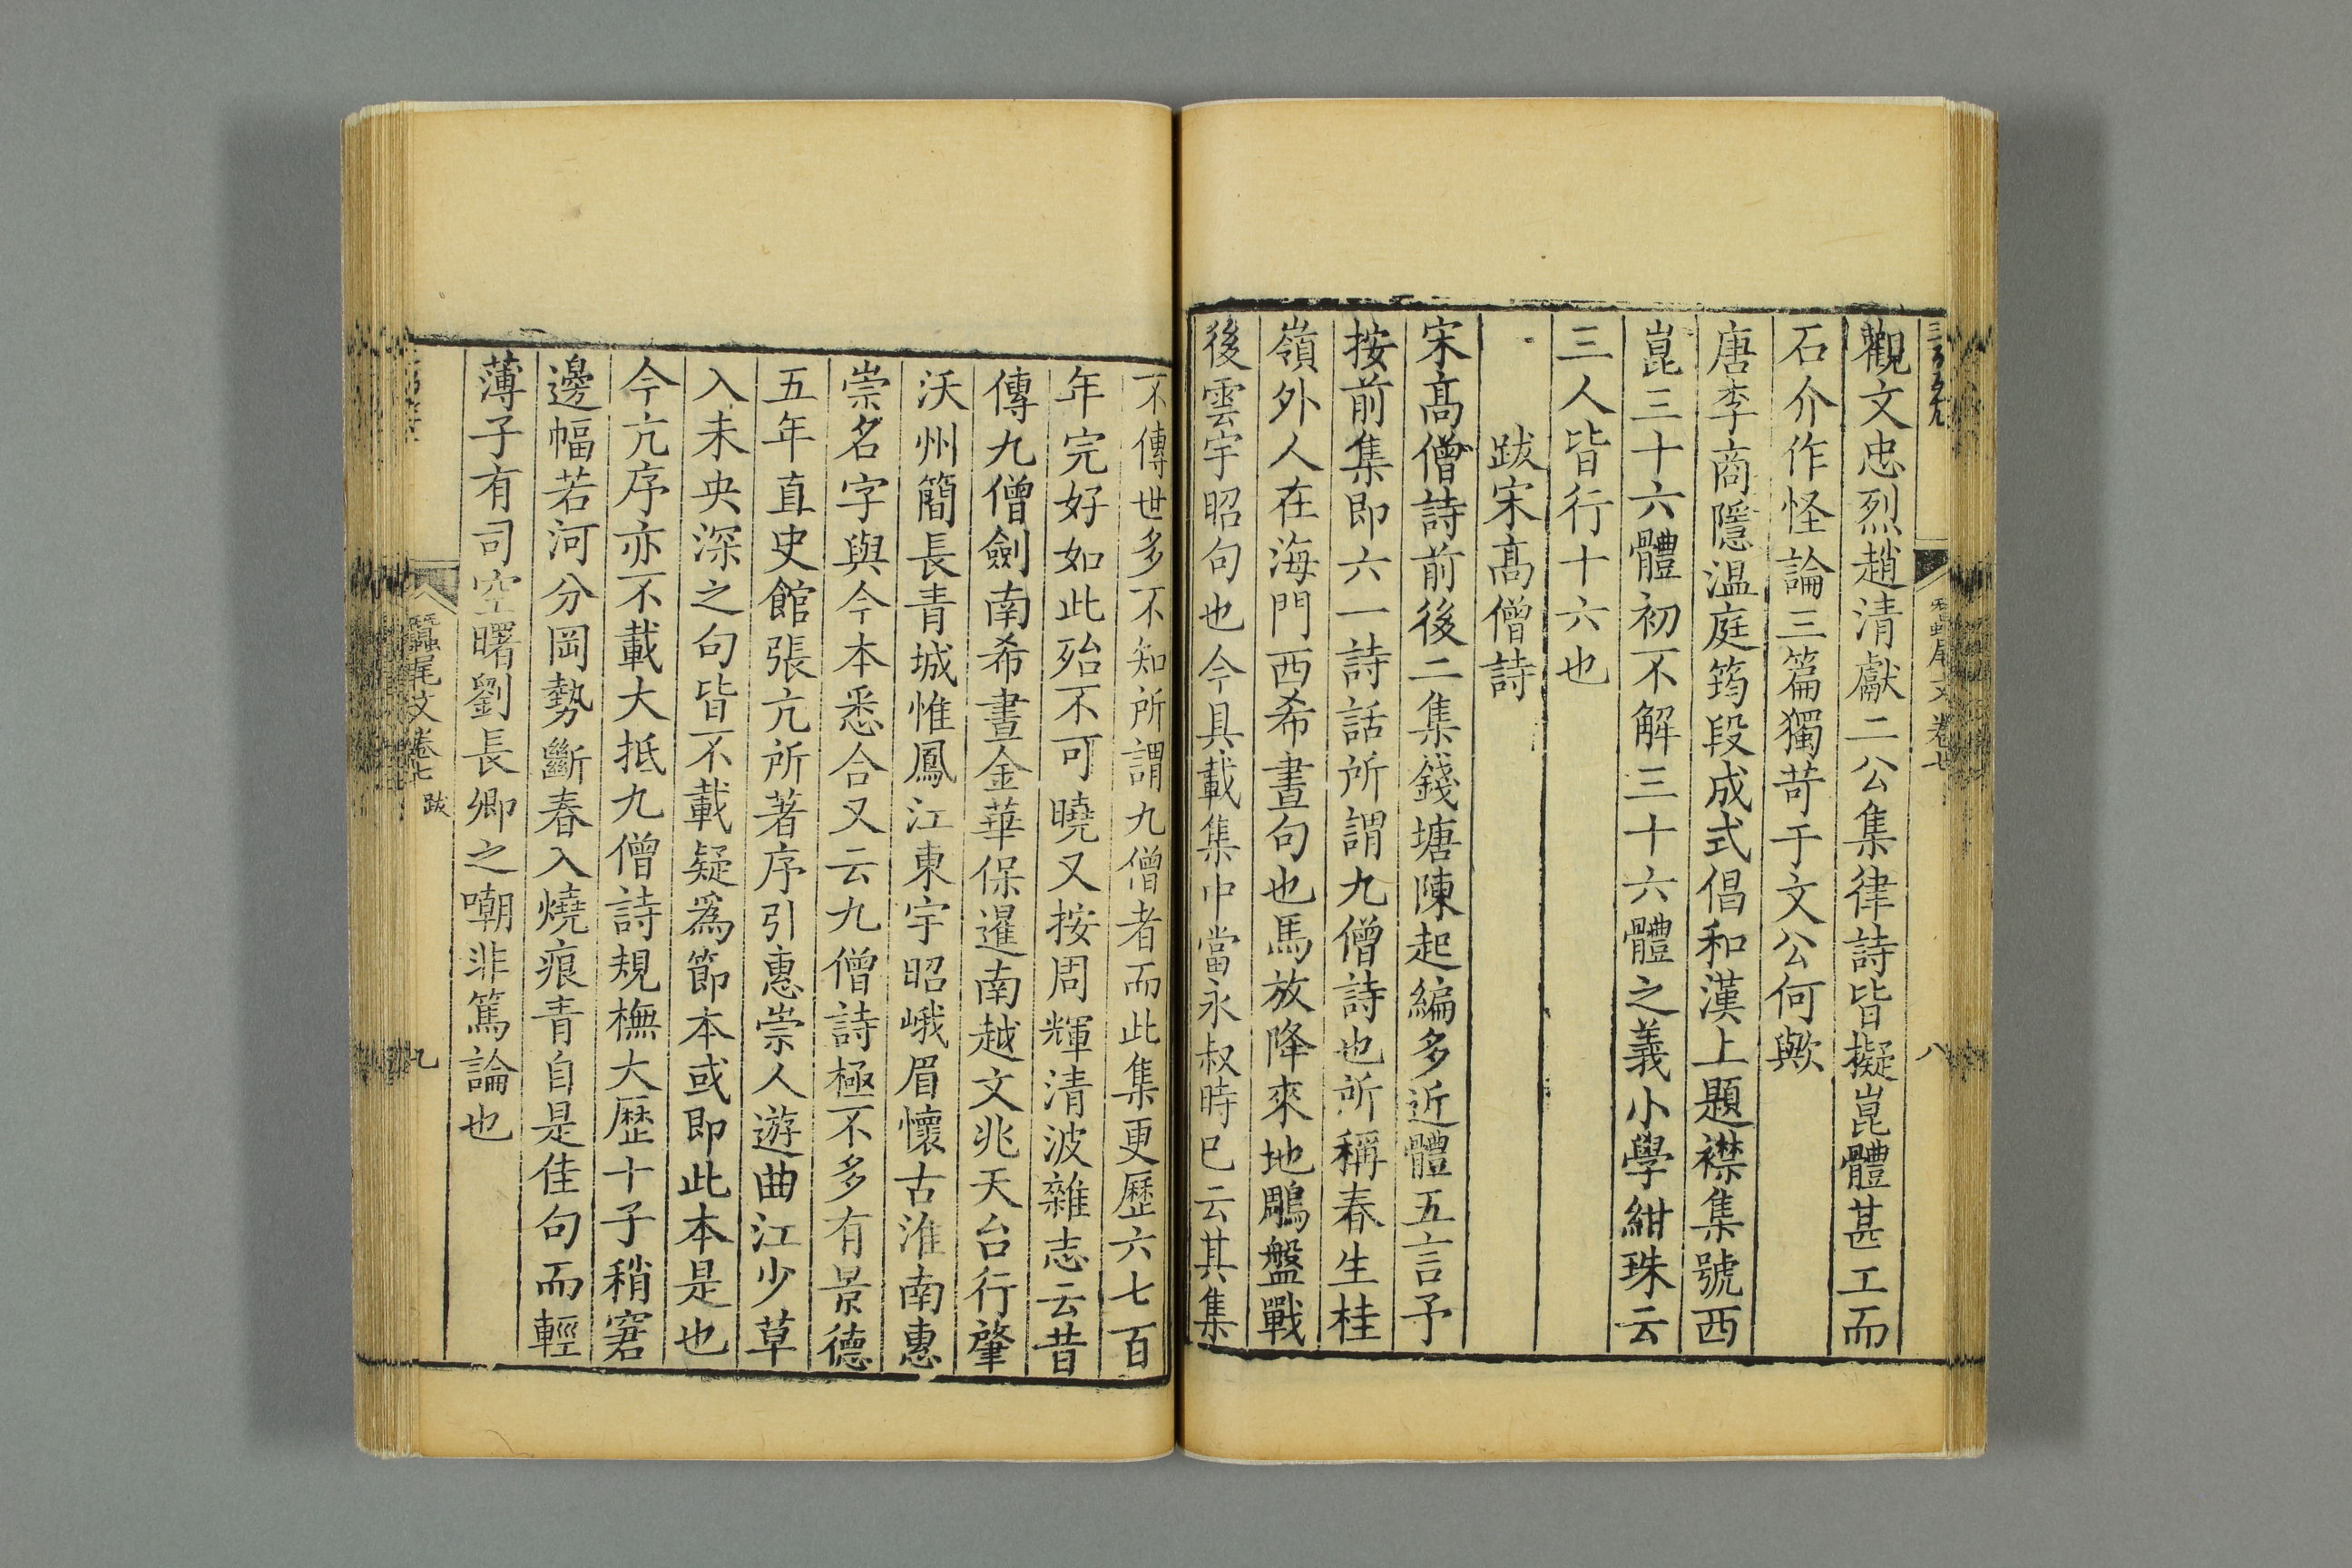 蠶尾文 卷七
八
觀文忠烈趙清獻二公集律詩皆擬崑體甚工而
石介作怪論三篇獨苛于文公何歟
唐李商隱温庭筠段成式倡和漢上題襟集號西
崑三十六體初不解三十六體之義小學紺珠云
三人皆行十六也
跋宋髙僧詩
宋髙僧詩前後二集錢塘陳起編多近體五言予
按前集即六一詩話所謂九僧詩也所稱春生桂
嶺外人在海門西希晝句也馬放降來地鵰盤戰
後雲宇昭句也今具載集中當永叔時已云其集
不傳世多不知所謂九僧者而此集更歷六七百
年完好如此殆不可曉又按周輝清波雜志云昔
傳九僧劍南希晝金華保暹南越文兆天台行肇
沃州簡長青城惟鳳江東宇昭峨眉懷古淮南惠
崇名字與今本悉合又云九僧詩極不多有景德
五年直史館張亢所著序引惠崇人遊曲江少草
入未央深之句皆不載疑爲節本或即此本是也
今亢序亦不載大抵九僧詩規橅大歴十子稍窘
邊幅若河分岡勢斷春入燒痕青自是佳句而輕
薄子有司空曙劉長卿之嘲非篤論也
蠶尾文 卷七 跋
九